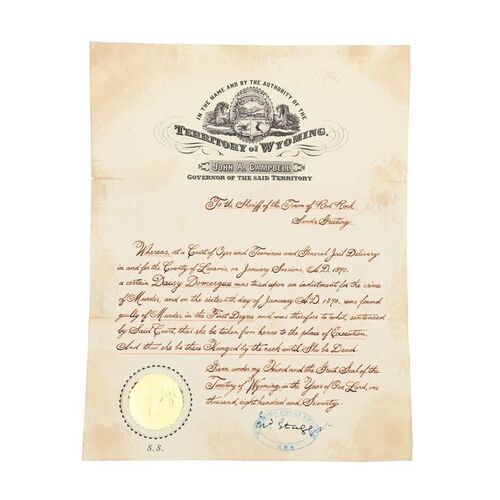 IN THE NAME AND BY THE AUTHORITY OF THE
TERRITORY of WYOMING.
JOHN A. CAMPBELL
GOVERNOR OF THE SAID TERRITORY
To the Sheriff of the Town of Red Rock
Sends Greeting:
Whereas, at a Court of Oyer and Terminus and General Jail Delivery
in and for the County of Laramis, on January Sessions, A.D. 1870,
a certain Daisy Domergue was tried upon an indictment for the crime
of Murder, and on the sixteenth day of January A.D. 1870, was found
guilty of Murder in the First Degree and was therefore to whit, sentenced
by Said Court, that she be taken from hence to the place of Execution,
And that she be there Hanged by the neck until She be Dead.
Given under my Hand and the Great Seal of the
Territory of Wyoming in the Year of Our Lord, one
thousand, eight hundred and Seventy.
S.S.